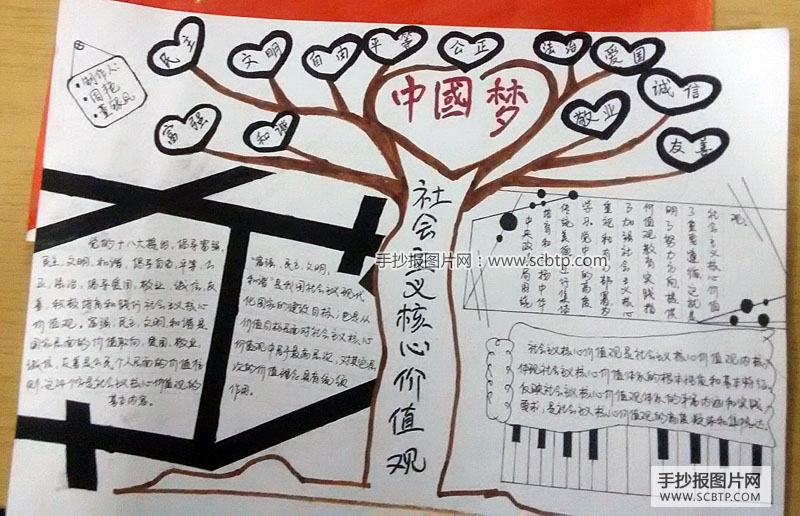 民主
文明
自由
平等
公正
法治
爱国
诚信
富强
和谐
敬业
友善
制作人:
中國梦
社会主义核心价值观
党的十八大提出,倡导富强、
民主、文明、和谐,倡导自由、平等、公
正、法治,倡导爱国、敬业、诚信、友
善,积极培育和践行社会主义核心
价值观。富强、民主、文明、和谐是
国家层面的价值取向,爱国、敬业、
诚信、友善是公民个人层面的价值准
则,这24个字是社会主义核心价值观的
基本内容。
"富强、民主、文明、
和谐"是我国社会主义现代
化国家的建设目标,也是从
价值目标层面对社会主义核心
价值观居于最高层次,对其他层
次的价值理念具有统领
作用。
中央政治局围绕
培育和弘扬中华
传统美德进行集体
学习。党中央的高度
重视和有力部署,为
加强社会主义核心
价值观教育实践指
明了努力方向,提供
了重要遵循。这就是
社会主义核心价值
观。
社会主义核心价值观是社会主义核心价值观内核,
体现社会主义核心价值体系的根本性质和基本特征,
反映社会主义核心价值体系的丰富内涵和实践
要求,是社会主义核心价值观的高度凝练和集中表达
手抄报图片网:www.scbtp.com
手抄报图片网
WWW.SCBTP.COM